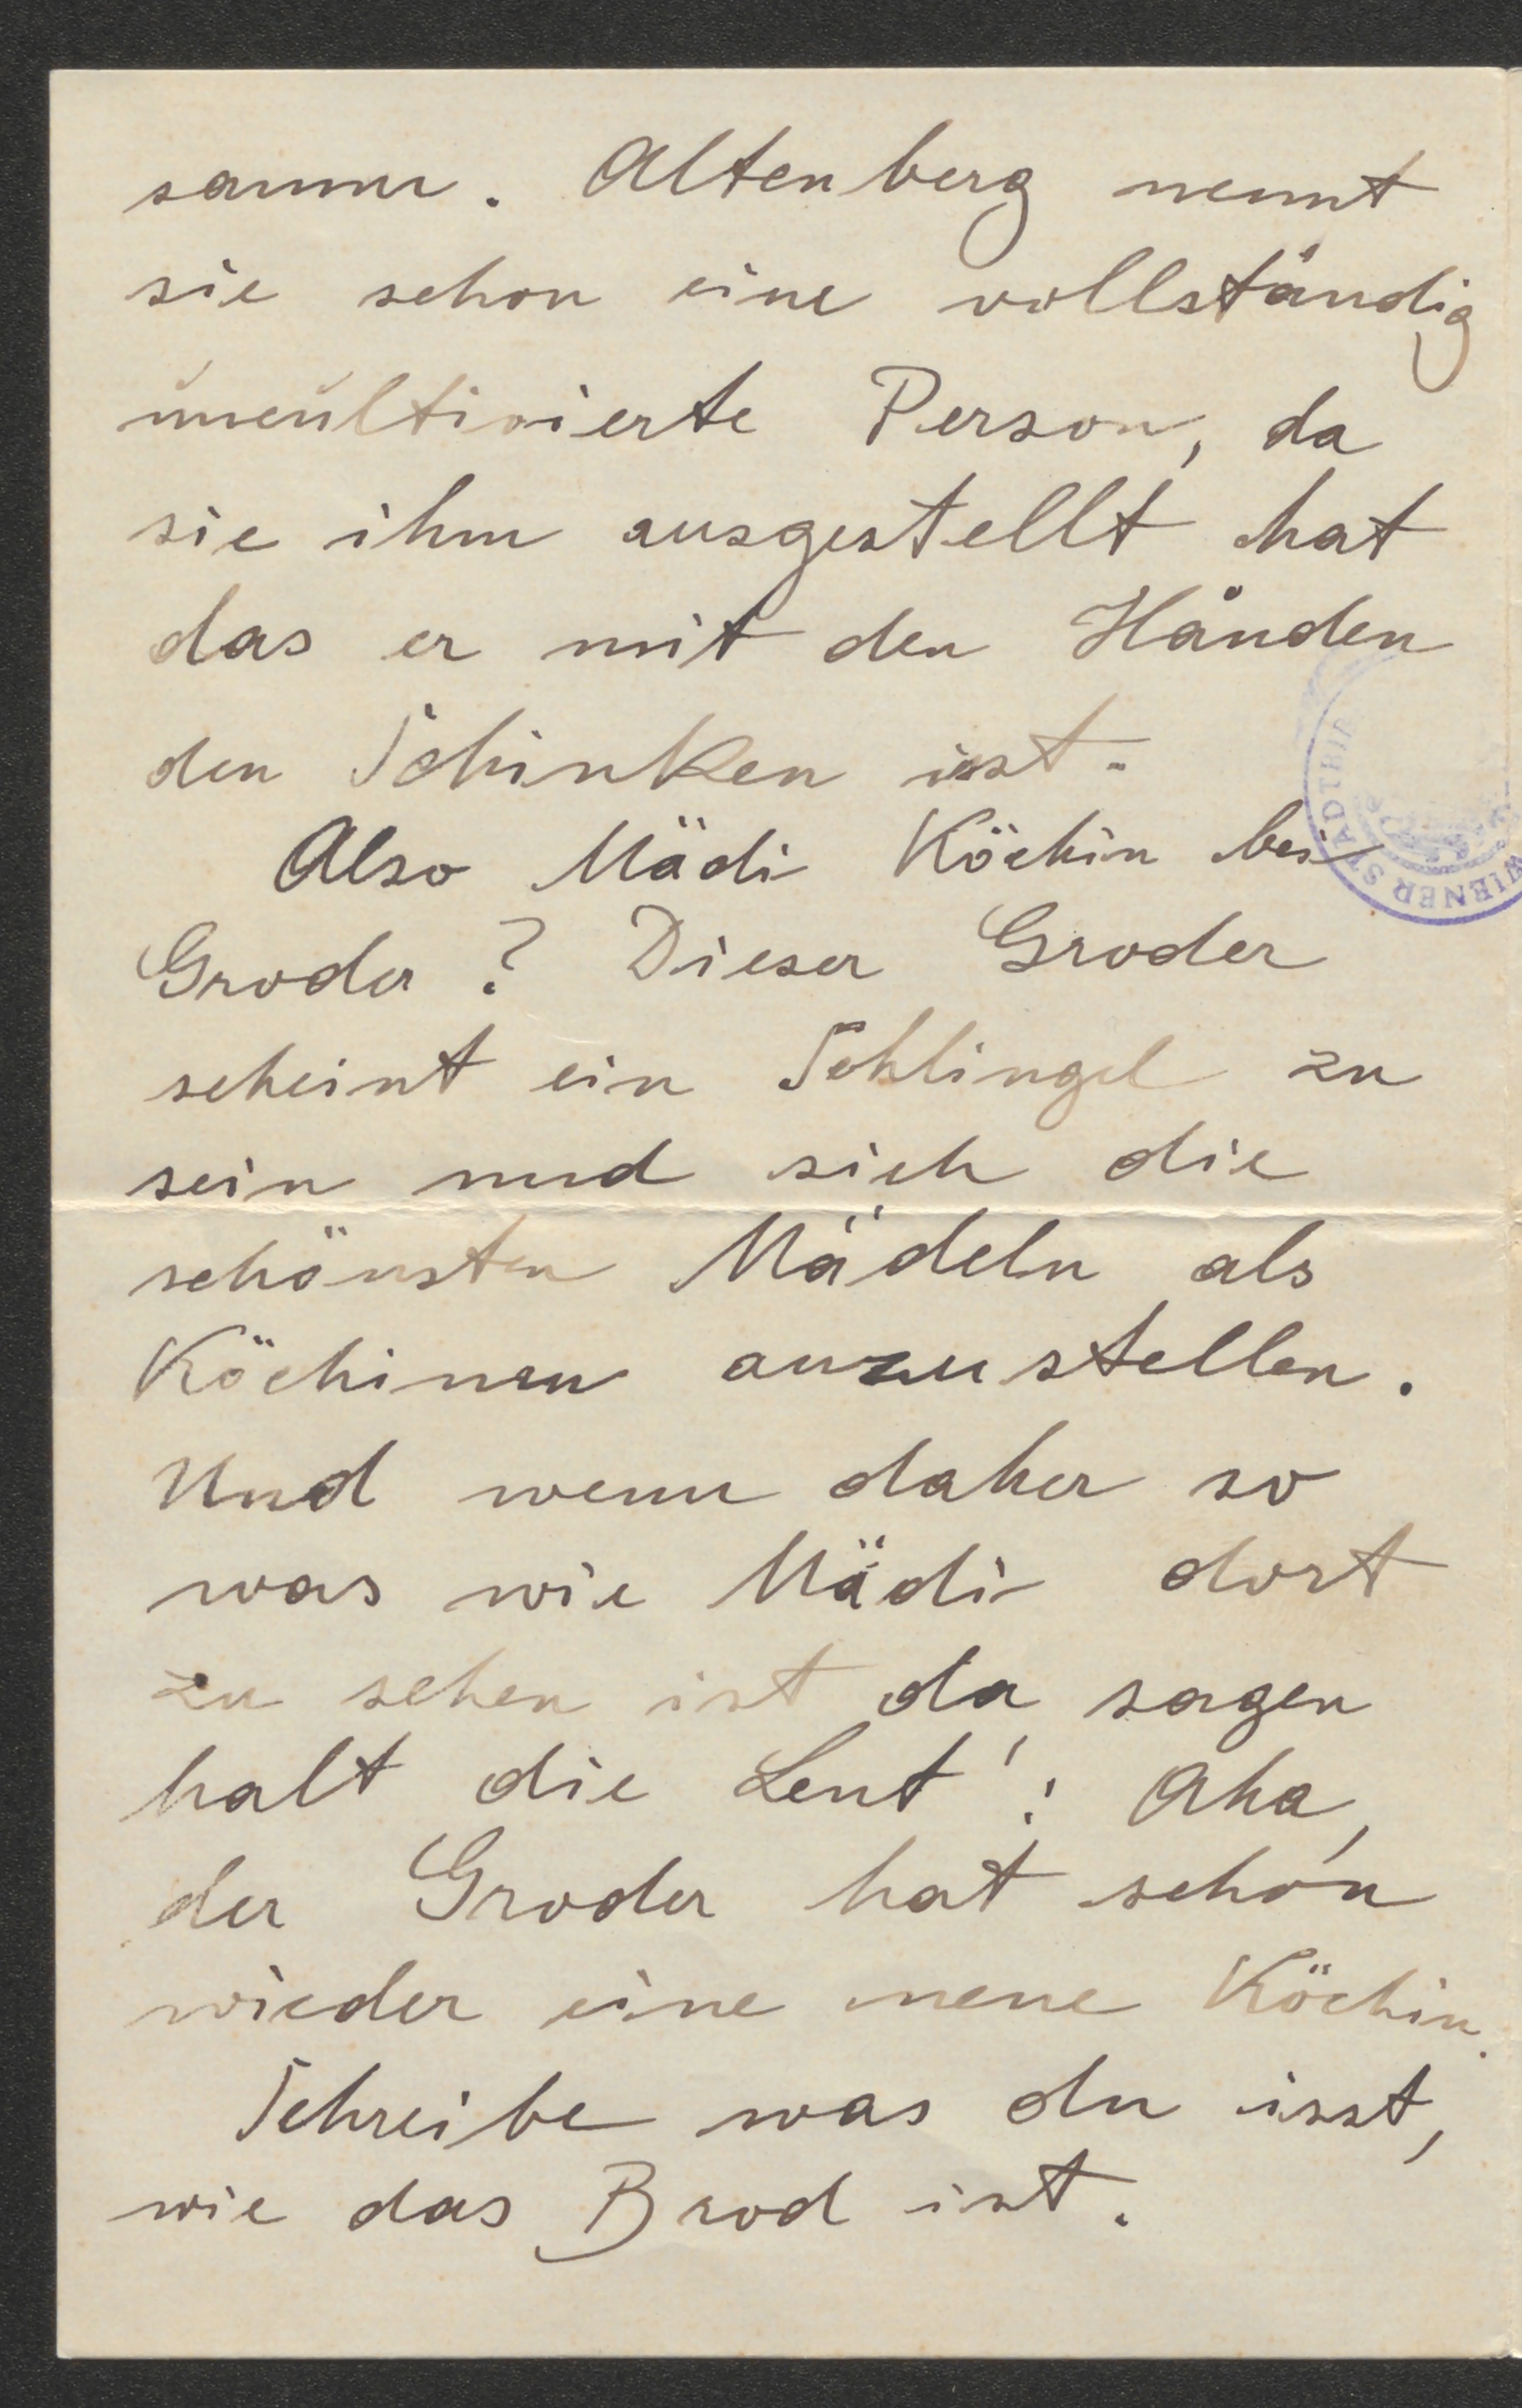 samm. Altenberg nennt
sie schon eine vollständig
uncultivierte Person, da
sie ihm ausgestellt hat
das er mit den Händen
den Schinken isst.
Also Mädi Köchin bei
Groder? Dieser Groder
scheint ein Schlingel zu
sein und sich die
schönsten Mädeln als
Köchinen anzustellen.
Und wenn daher so
was wie Mädi dort
zu sehen ist da sagen
halt die Leut': Aha,
der Groder hat schon
wieder eine neue Köchin.
Schreibe was du isst,
wie das Brod ist.
WIENER STADTBI